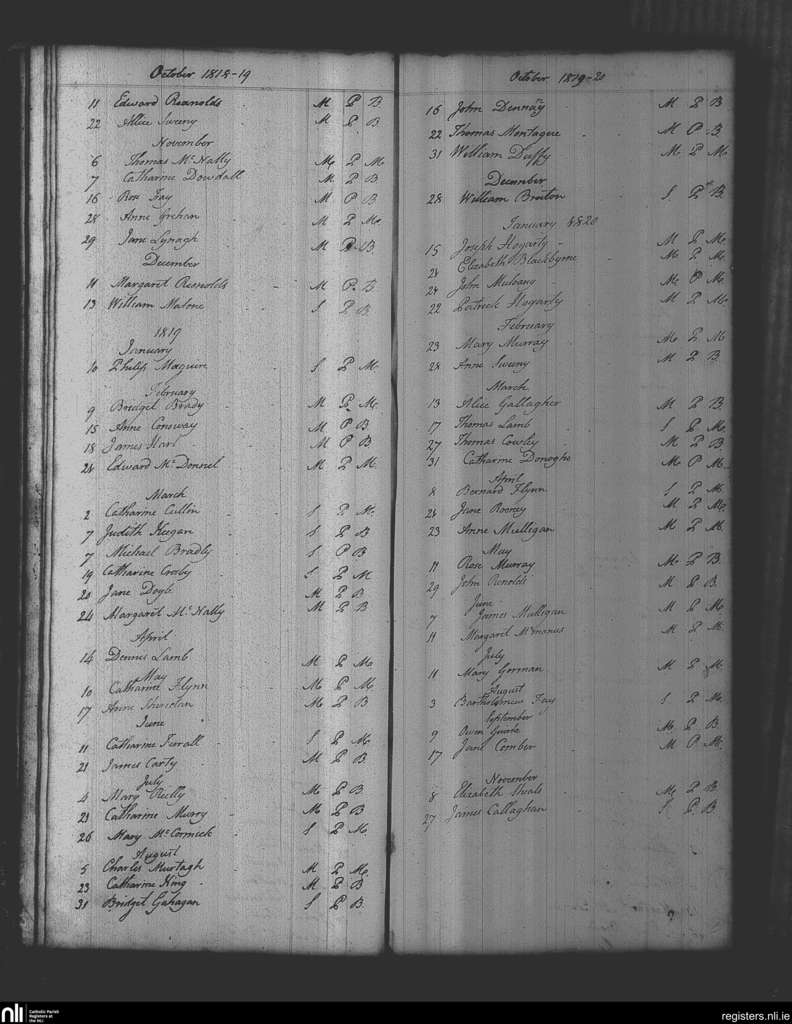 October 1818-19
11 Edward Reanolds M P B
22 Allice Sweny M P B
November
6 Thomas McNally M P M
7 Catharine Dowdall M P B
16 Rose Fay M P B
28 Anne Grehan M P M
29 Jane Lynagh M P B
December
11 Margaret Reanolds M P B
13 William Malone S P B
1819
January
10 Philip Maguire S P M
February
9 Bridget Brady M P M
15 Anne Conoway M P B
18 James Harl M P B
24 Edward McDonnel M P M
March
2 Catharine Cullin S P M
7 Judith Keegan S P B
7 Michael Bradly S P B
19 Catharine Crosby S P M
20 Jane Doyle M P B
24 Margaret McNally M P B
April
14 Dennis Lamb M P M
May
10 Catharine Flynn M P M
17 Anne Sheridan M P B
June
11 Catharine Farrall S P M
21 James Carty M P B
July
4 Mary Reilly M P B
21 Catharine Murry M P B
26 Mary McCormick S P M
August
5 Charles Murtagh M P M
23 Catharine King M P B
31 Bridget Gahagan S P B
October 1819-20
16 John Dennay M P B
22 Thomas Montague M P B
31 William Duffy M P M
December
28 William Breton S P B
January 1820
15 Joseph Hogarty M P M
21 Elizabeth Blackbyrne M P M
24 John Mulvany M P M
22 Patrick Hogarty M P M
February
23 Mary Murray M P M
28 Anne Sweny M P B
March
13 Alice Gallagher M P B
17 Thomas Lamb S P M
27 Thomas Cowley M P B
31 Catharine Donoghe M P M
April
8 Bernard Flynn S P M
21 Jane Rooney M P M
23 Anne Mulligan M P M
May
11 Rose Murray M P B
29 John Renolds M P B
June
7 James Mulligan M P M
11 Margaret Mcmanus M P M
July
11 Mary Gorman M P M
August
3 Bartholomew Fay S P M
September
9 Owen M P B
17 Jane Comber M P M
November
8 Elizabeth Sheals M P B
27 James Callaghan S P B
nli
Catholic Parish
Registers at
the NLI
registers.nli.ie